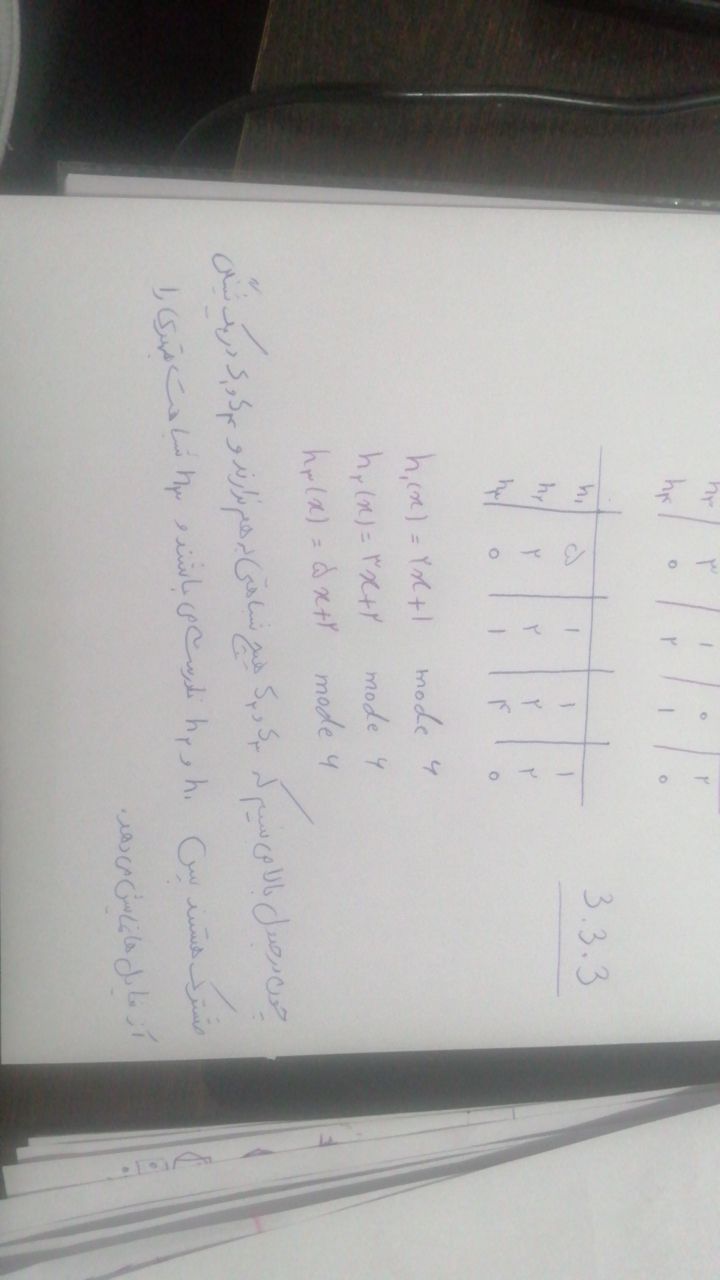 h۳ ۳ ۱ ۰ ۲
h۴ ۰ ۲ ۱ ۰
3.3.3
h۱ ۵ ۱ ۱ ۱
h۲ ۲ ۲ ۲ ۲
h۳ ۰ ۱ ۴ ۰
h۱(x) = ۲x+۱ mode ۶
h۲(x) = ۳x+۲ mode ۶
h۳(x) = ۵x+۲ mode ۶
چون در جدول بالا می بینیم که S۳ و S۲ هیچ شباهتی به هم ندارند و S۴ و S۱ در یک شینگل
مشترک هستند پس h۱ و h۲ نادرست می باشند و h۳ شباهت بهتری را
از فایل ها نمایش می دهد.